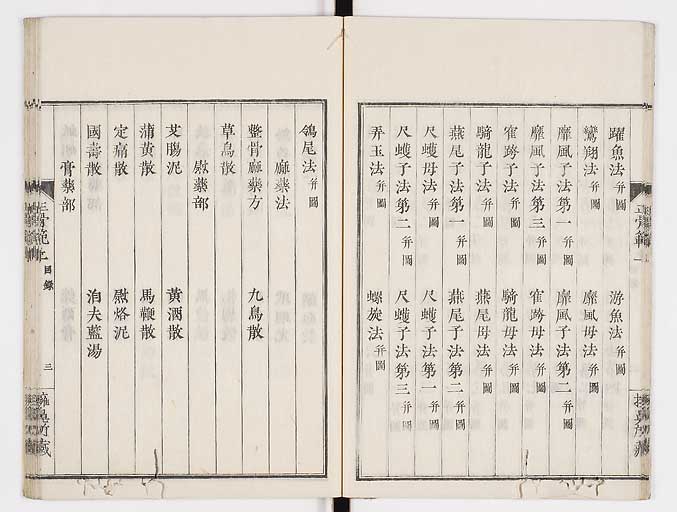 躍魚法 并圖 游魚法 并圖
鸞翔法 并圖 靡風母法 并圖
靡風子法第一 并圖 靡風子法第二 并圖
靡風子法第三 并圖 寉跨母法 并圖
寉跨子法 并圖 騎龍母法 并圖
騎龍子法 并圖 燕尾母法 并圖
燕尾子法第一 并圖 燕尾子法第二 并圖
尺蠖母法 并圖 尺蠖子法第一 并圖
尺蠖子法第二 并圖 尺蠖子法第三 并圖
弄玉法 并圖 螺旋法 并圖
鴿尾法 并圖
麻藥法
整骨麻藥方 九烏散
草烏散
熨藥部
艾腸泥 黃酒散
蒲黃散 馬鞭散
定痛散 熨烙泥
國壽散 泊夫藍湯
膏藥部
正骨範上 目錄 三